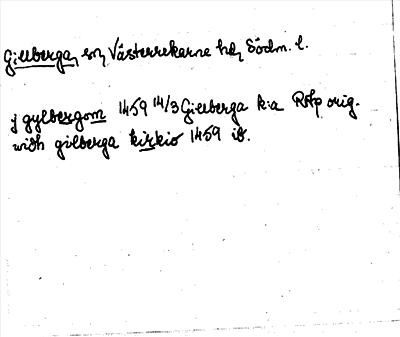 Gillberga, sn, Västerrekarne hd, Södm. l.
j gylbergom 1459 14/3 Gillberga k:a Rap orig.
widh gilberga kirkio 1459 ib.